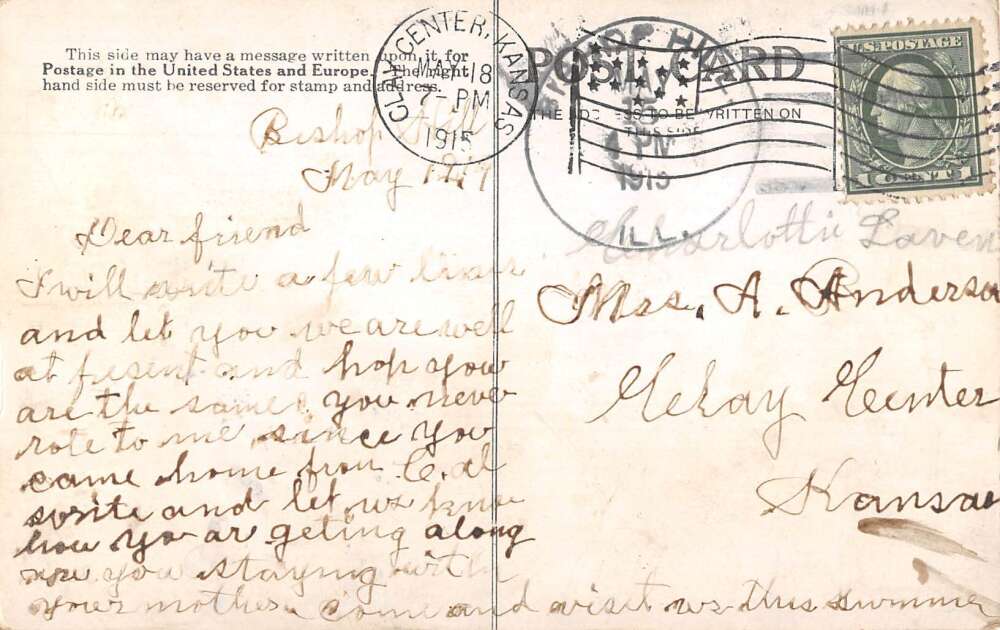 This side may have a message written upon it for
Postage in the United States and Europe. The right
hand side must be reserved for stamp and address.
Bishop Hill
May 17
Dear friend
I will write a few lines
and let you we are well
at present and hop you
are the same, you never
rote to me since you
came home from Cal
write and let us know
how yo ar geting along
are you staying with
your mother. Come and visit us this summer
POST CARD
THE ADDRESS TO BE WRITTEN ON
THIS SIDE
CLAY CENTER, KANSAS
MAY 18
7-PM
1915
BISHOP HILL
PM
1915
ILL.
U.S. POSTAGE
1 CENT 1
Charlottie Laven
Mrs. A. Anderson
Clay Center
Kansas